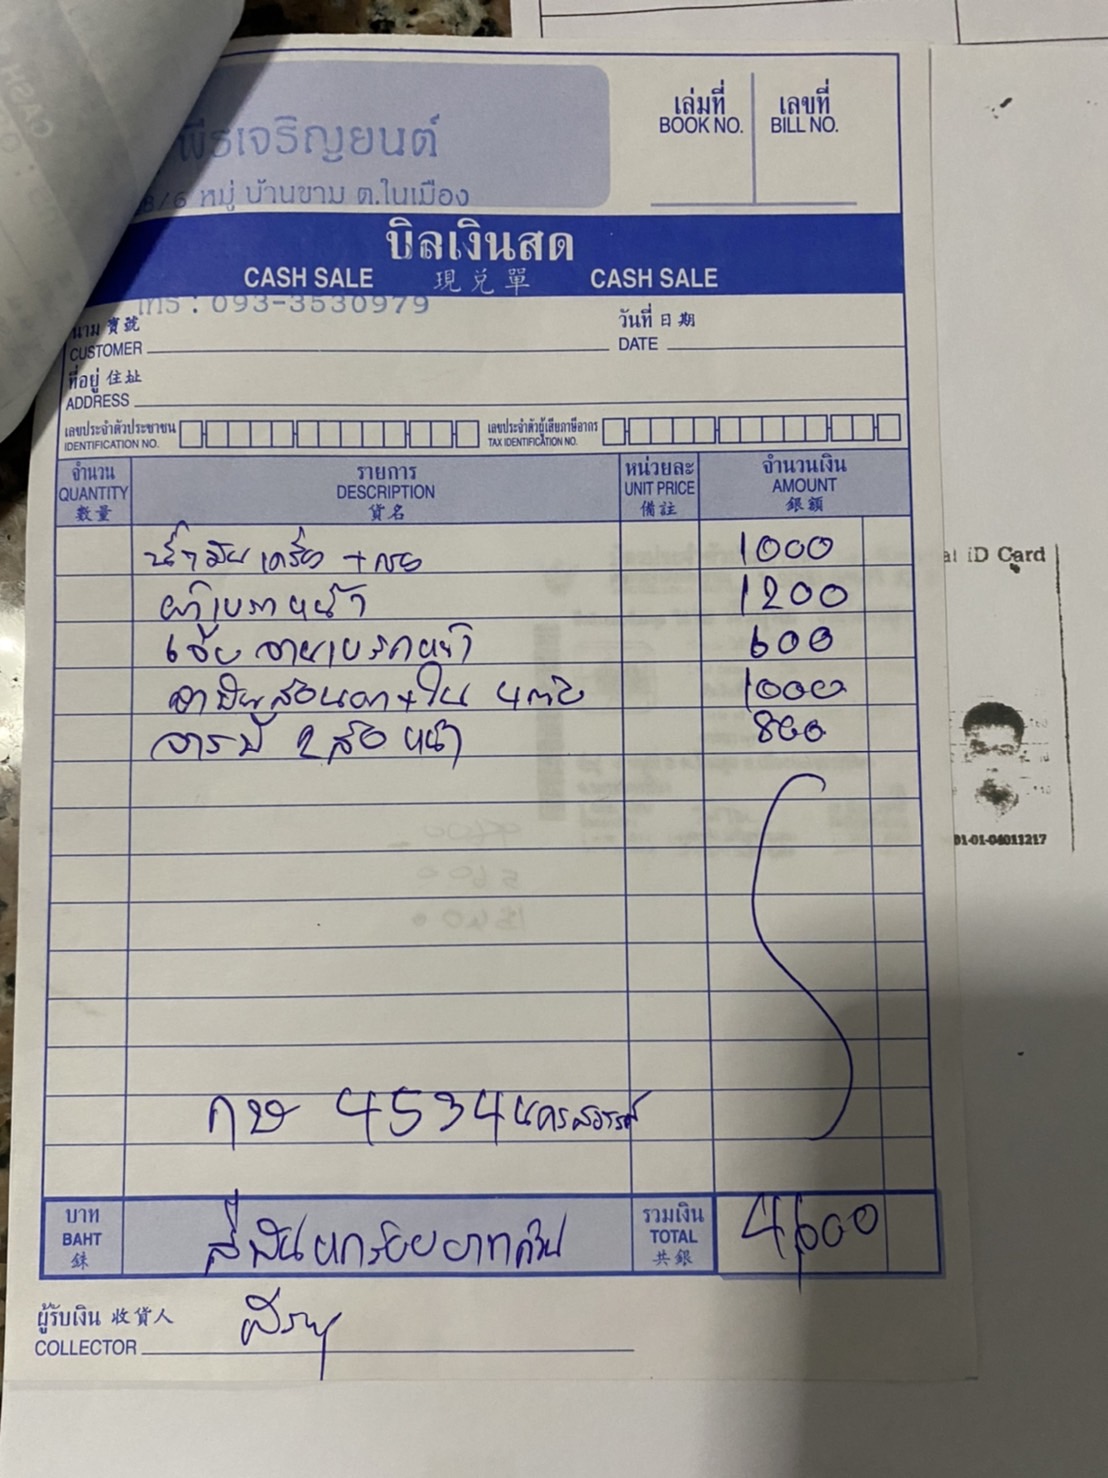 พีรเจริญยนต์
8/6 หมู่ บ้านขาม ต.ในเมือง
เล่มที่ เลขที่
BOOK NO. BILL NO.
บิลเงินสด
CASH SALE 現兌單 CASH SALE
โทร : 093-3530979
นาม 寳號 วันที่ 日期
CUSTOMER DATE
ที่อยู่ 住址
ADDRESS
เลขประจำตัวประชาชน เลขประจำตัวผู้เสียภาษีอากร
IDENTIFICATION NO. TAX IDENTIFICATION NO.
จำนวน รายการ หน่วยละ จำนวนเงิน
QUANTITY DESCRIPTION UNIT PRICE AMOUNT
數量 貨名 備註 銀額
น้ำมันเครื่อง + กรอง 1000
ผ้าเบรกหน้า 1200
เจียจานเบรกหน้า 600
1000
จารบี 2 ล้อ หน้า 800
กษ 4534 นครสวรรค์
บาท สี่พันหกร้อยบาทถ้วน รวมเงิน 4600
BAHT TOTAL
銖 共銀
ผู้รับเงิน 收貨人
COLLECTOR
al iD Card
01-01-04011217